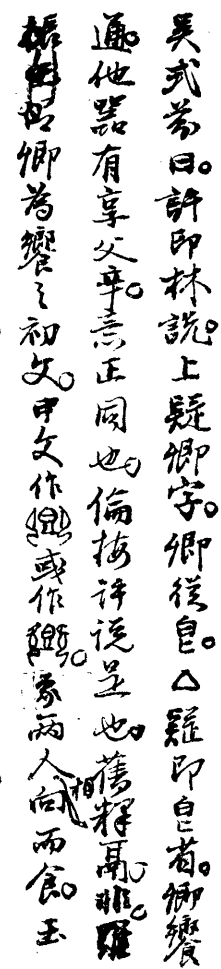 吳式芬曰。許印林說。上疑卿字。卿從皀。△疑即皀省。卿饗
通。他器有享父辛。意正同也。倫按許說是也。舊釋鬲。非。羅
振卿為饗之初文。甲文作或作。象兩人相向而食。玉